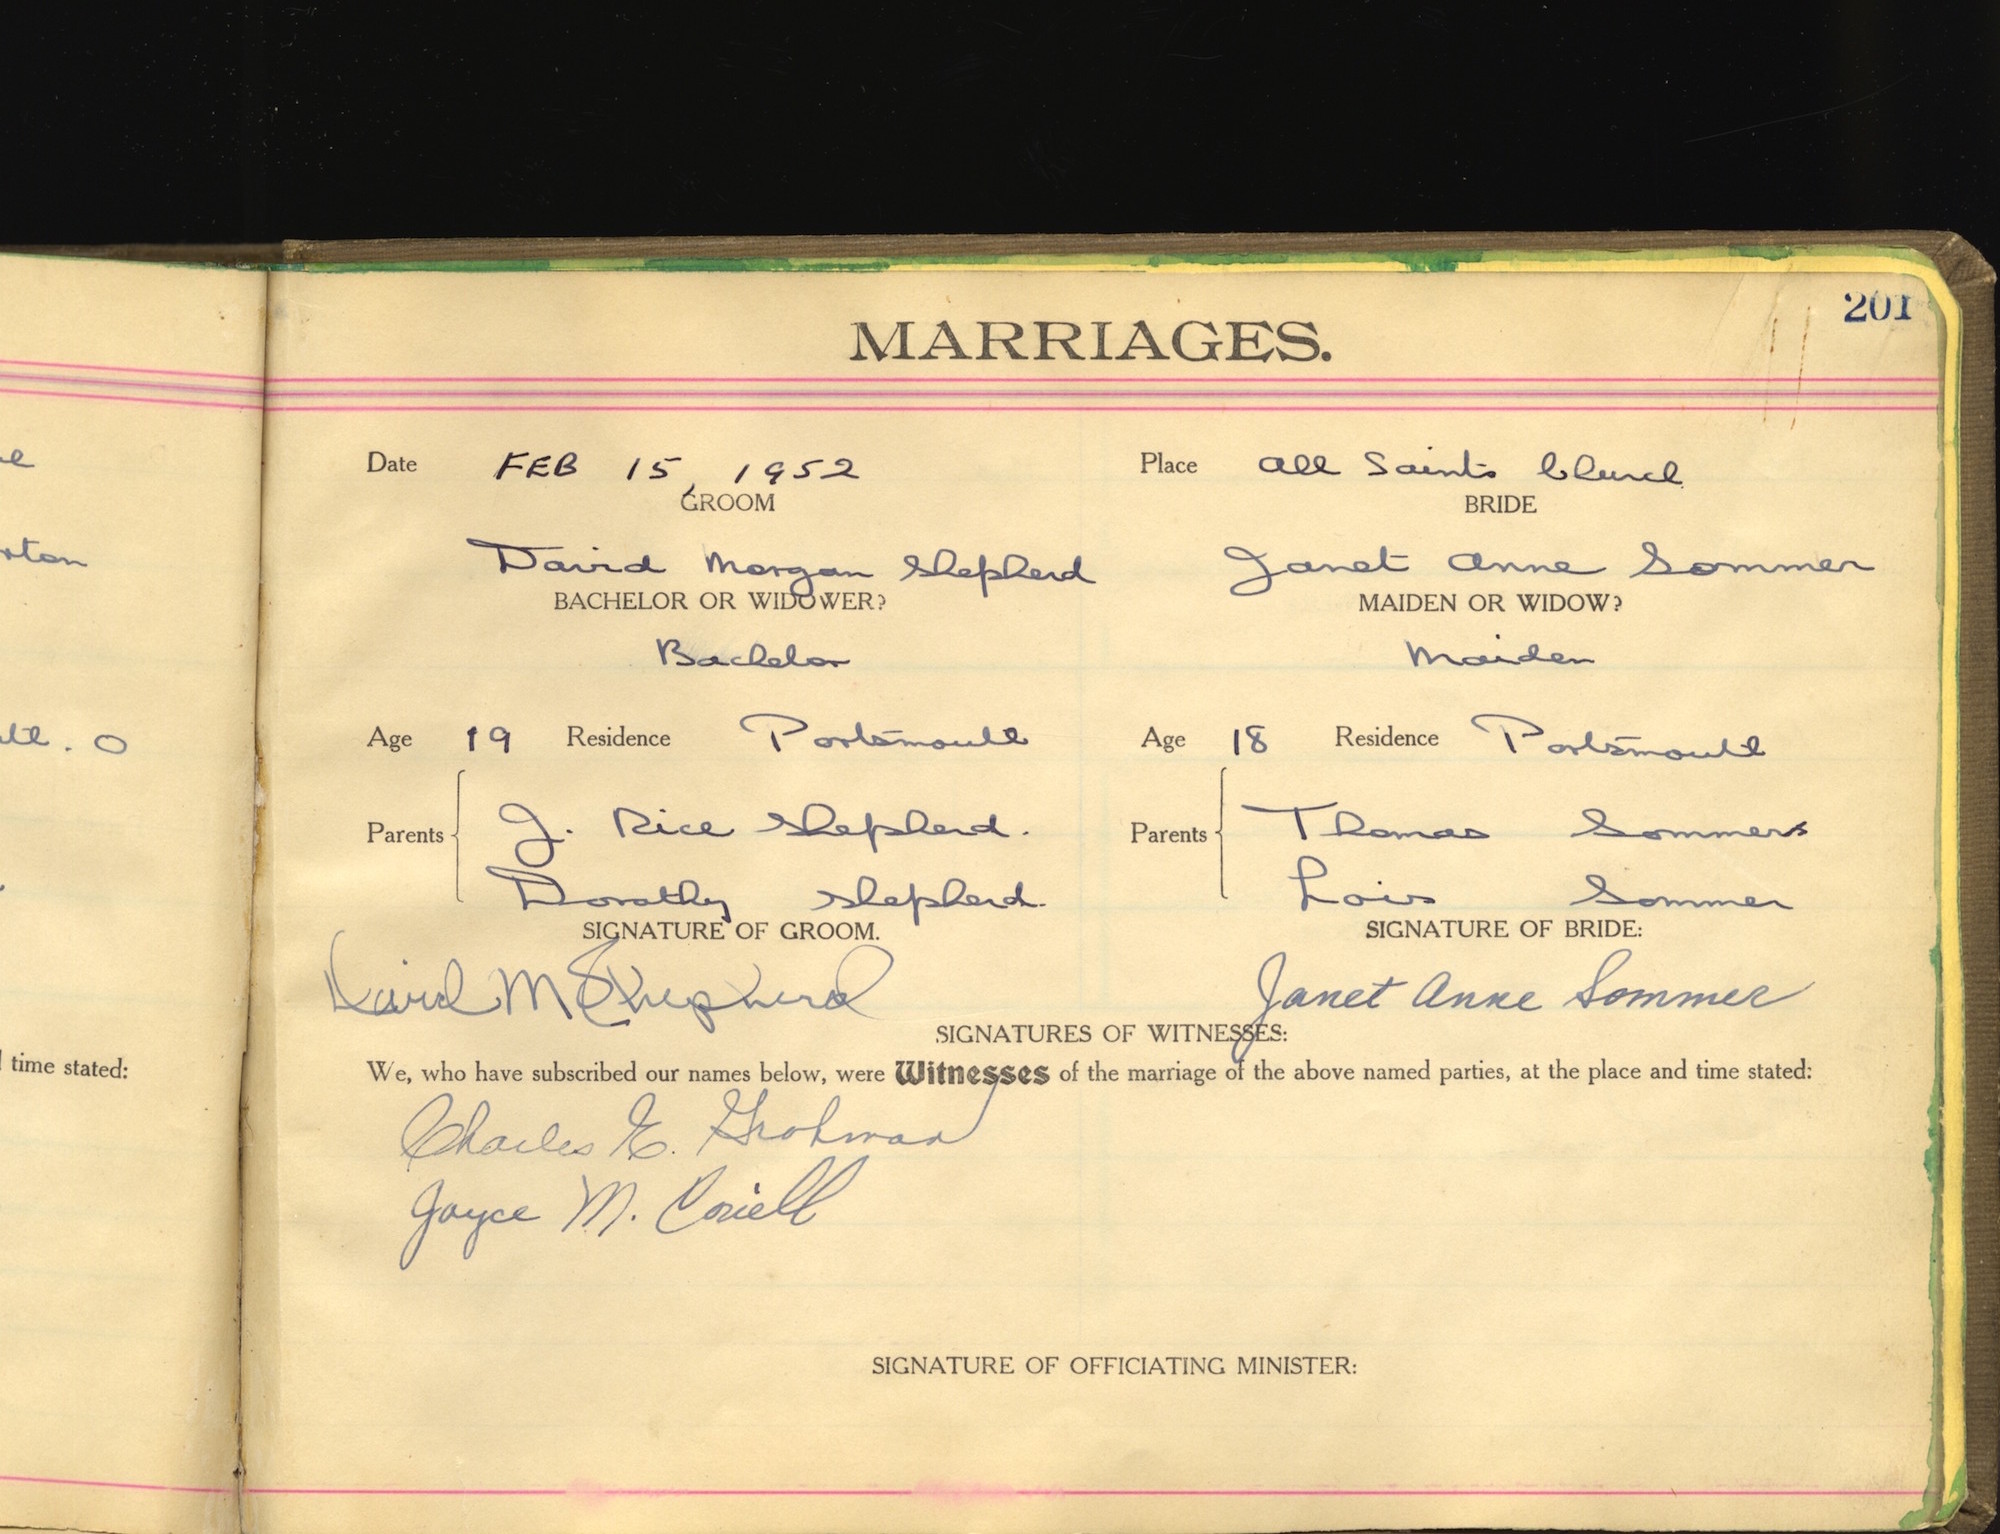 201
MARRIAGES.
Date FEB 15, 1952 Place All Saints Church
GROOM BRIDE
David Morgan Shepherd Janet Anne Sommer
BACHELOR OR WIDOWER? MAIDEN OR WIDOW?
Bachelor Maiden
Age 19 Residence Portsmouth Age 18 Residence Portsmouth
Parents J. Rice Shepherd. Parents Thomas Sommer
Dorothy Shepherd. Lois Sommer
SIGNATURE OF GROOM. SIGNATURE OF BRIDE:
David M Shepherd Janet Anne Sommer
SIGNATURES OF WITNESSES:
time stated: We, who have subscribed our names below, were Witnesses of the marriage of the above named parties, at the place and time stated:
Charles E. Grohman
Joyce M. Coriell
SIGNATURE OF OFFICIATING MINISTER: